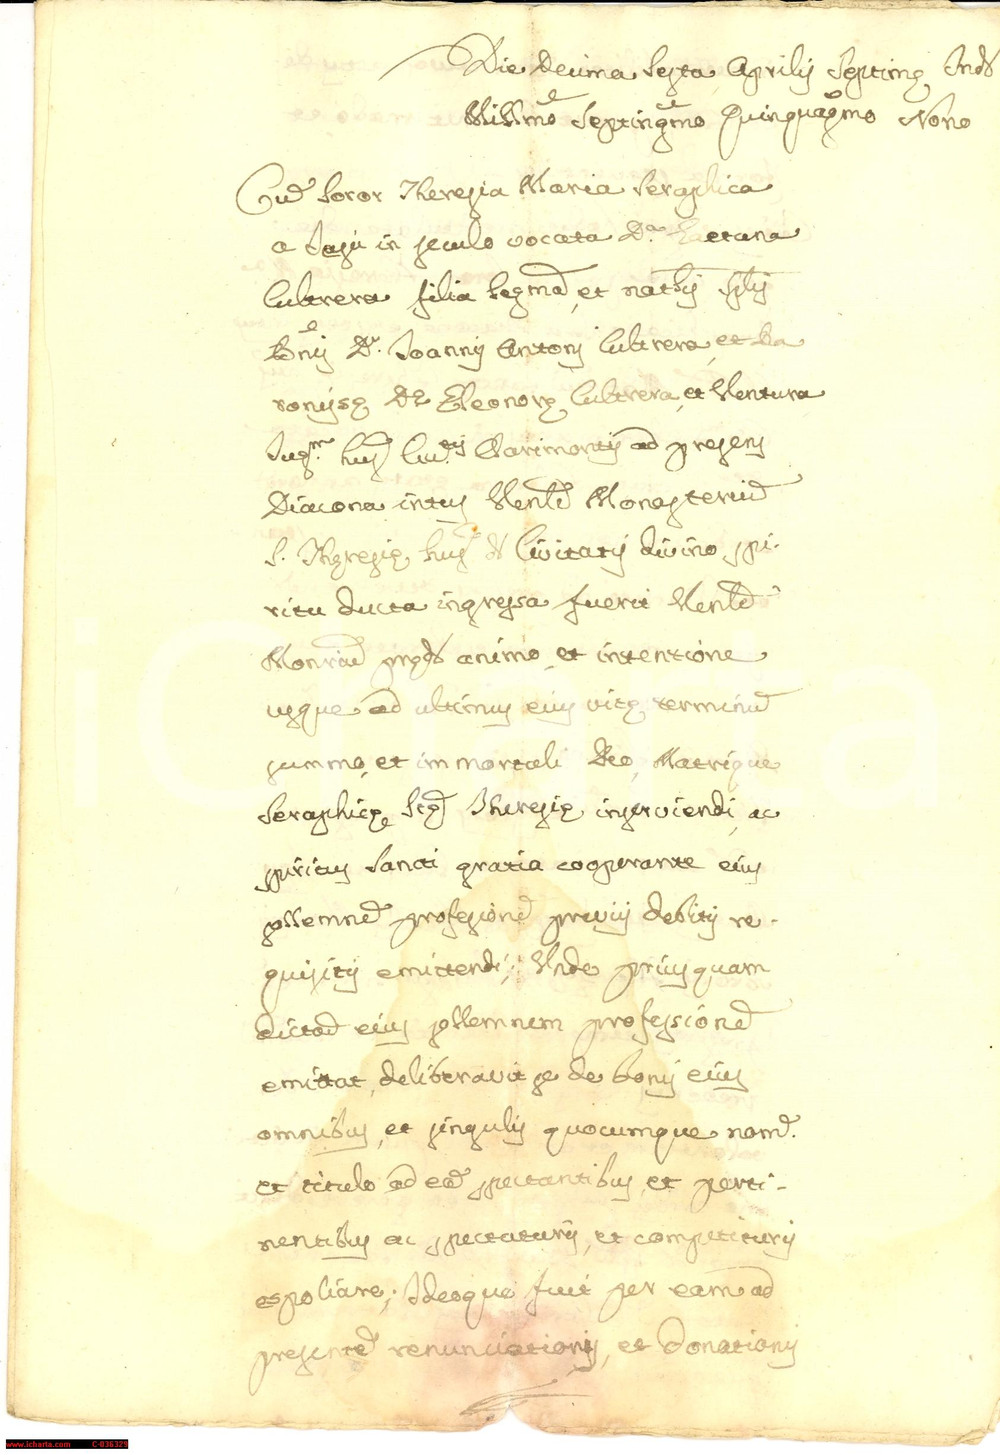 Die Decima Sexta Aprilis Septimę Inds
Millmo Septingmo Quinquagmo Nono
Cud Soror Theresia Maria Seraphica
a Jesu in seculo vocata Da. Gaetana
Cultrera filia legma, et natlis
Bnis Dr. Joannis Antonij Cultrera, et Ba
ronissę Dę Eleonorę Cultrera, et Ventura
Jugm. huj Civtis Clarimontis ad presens
Diacona intus Venle Monasteriu
S. Theresię huj Civitatis divino spi-
ritu ducta ingressa fuerit Venle
Monriu animo, et intentione
usque ad ultimus ejus vitę terminu
summo, et immortali Deo, Matrique
Seraphicę Theresię inserviendi, ac
spiritus Sancti gratia cooperante ejus
sollemne profesione previis debitis re-
quisitis emittendi; Unde priusquam
dictad ejus sollemnem professione
emittat, deliberavit se de bonis ejus
omnibus, et singulis quocumque nome.
et titulo ad ea spectantibus, et perti-
nentibus ac spectaturis, et competituris
espoliare; Ideoque fuit per eam ad
presente renunciationis, et Donationis
www.icharta.com C-036329
iCharta